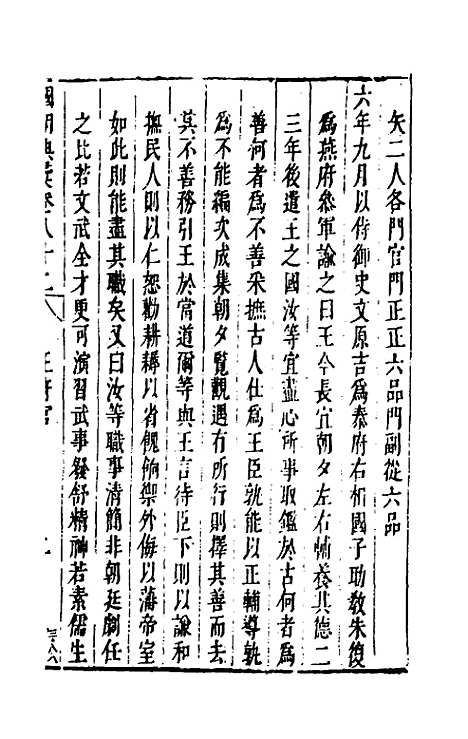 矢二人各門官門正正六品門副從六品
六年九月以侍御史文原吉爲秦府右相國子助教朱復
爲燕府參軍諭之曰王今長宜朝夕左右輔養其德二
三年後遣王之國汝等宜盡心所事取鑑於古何者爲
善何者爲不善采摭古人仕爲王臣孰能以正輔導孰
爲不能編次成集朝夕覽觀遇有所行則擇其善而去
其不善務引王於當道爾等與王言待臣下則以謙和
撫民人則以仁恕勸耕耨以省餽餉禦外侮以藩帝室
如此則能盡其職矣又曰汝等職事清簡非朝廷劇任
之比若文武全才更可演習武事發舒精神若素儒生
國朝典彙卷八十二 王府官 二